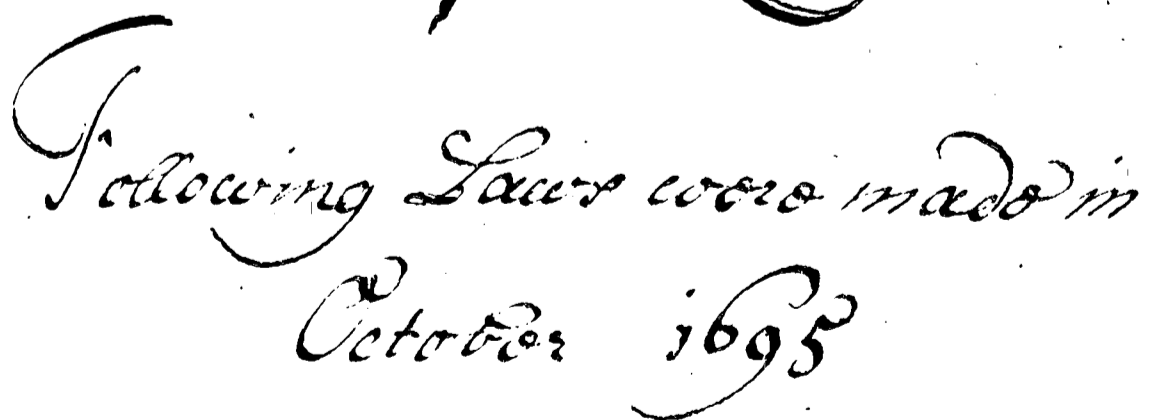 Following Laws were made in
October 1695